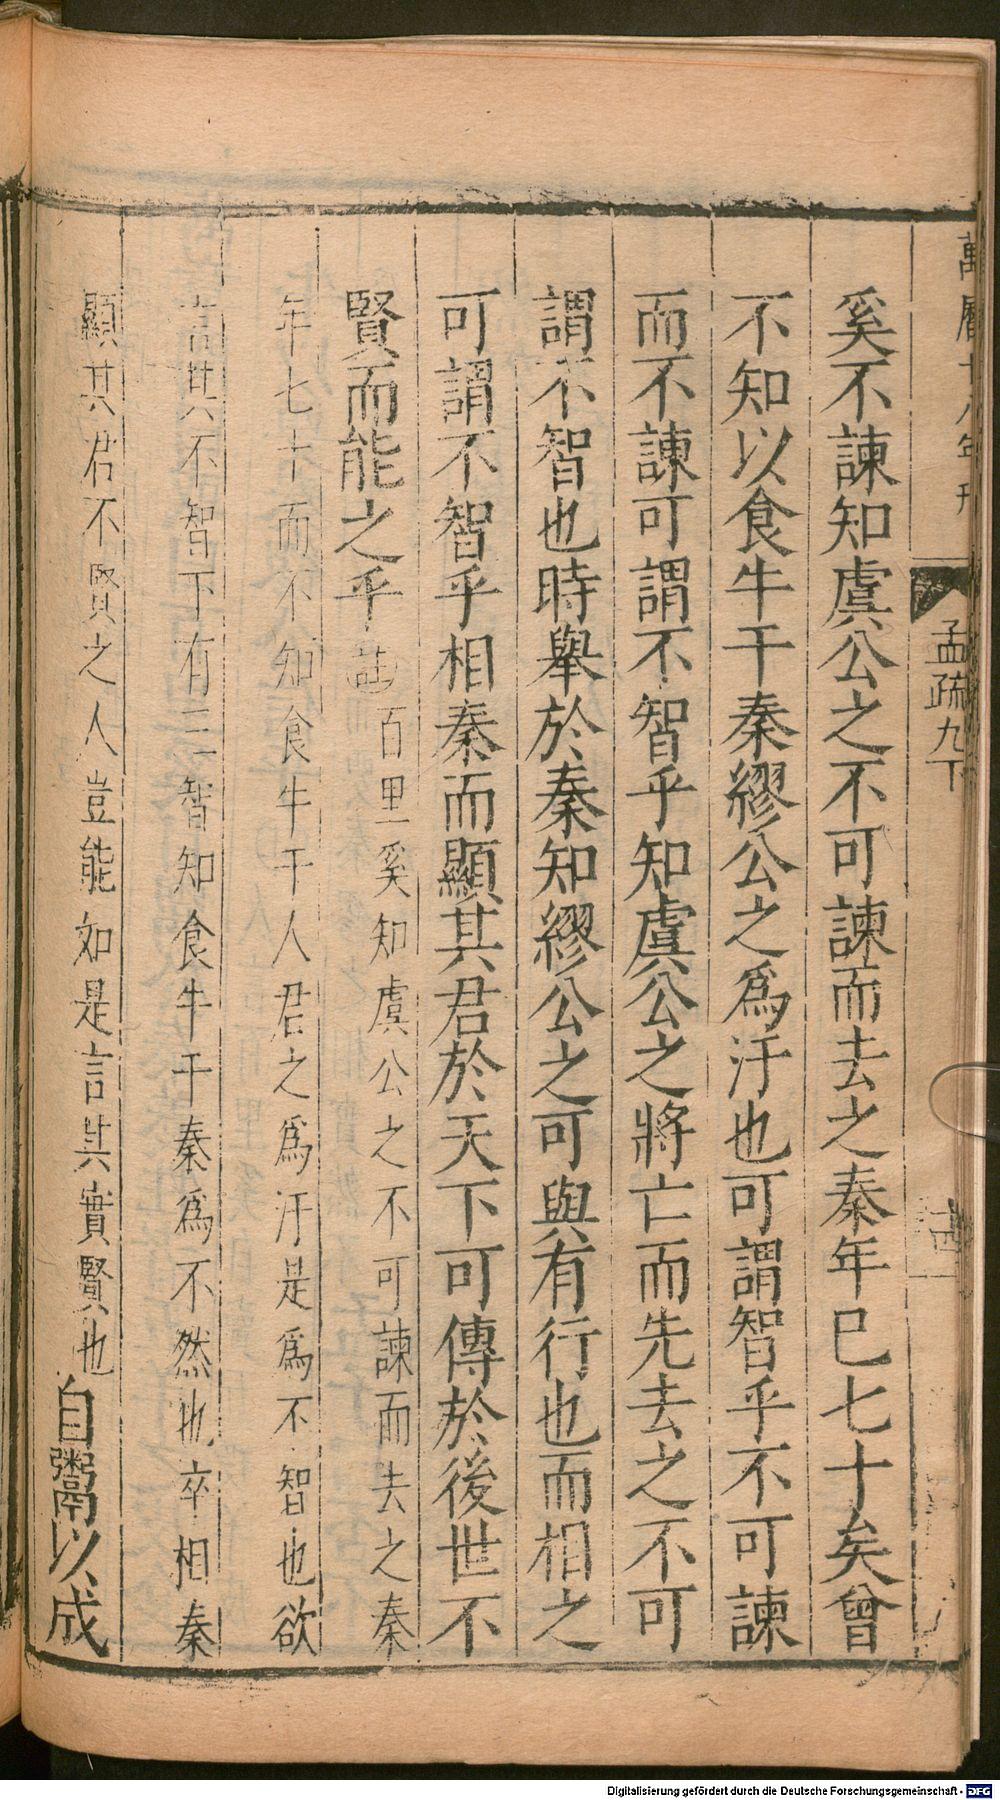 萬曆十八年刊
孟疏九下
奚不諫知虞公之不可諫而去之秦年已七十矣曾
不知以食牛干秦繆公之為汙也可謂智乎不可諫
而不諫可謂不智乎知虞公之將亡而先去之不可
謂不智也時舉於秦知繆公之可與有行也而相之
可謂不智乎相秦而顯其君於天下可傳於後世不
賢而能之乎註百里奚知虞公之不可諫而去之秦
年七十而不知食牛干人君之為汙是為不智也欲
言其不智下有三智知食牛干秦為不然也卒相秦
顯其君不賢之人豈能如是言其實賢也自鬻以成
Digitalisierung gefördert durch die Deutsche Forschungsgemeinschaft - DFG